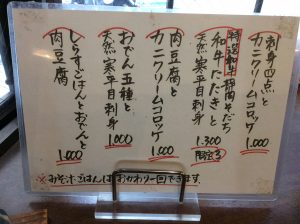 刺身四点と
カニクリームコロッケ
1.000
特選和牛静岡そだち
和牛たたきと
天然寒平目刺身
1.300
限定3
肉豆腐と
カニクリームコロッケ
1.000
おでん五種と
天然寒平目刺身
1.000
しらすごはんとおでんと
肉豆腐
1.000
※みそ汁ごはんはおかわり一回できます